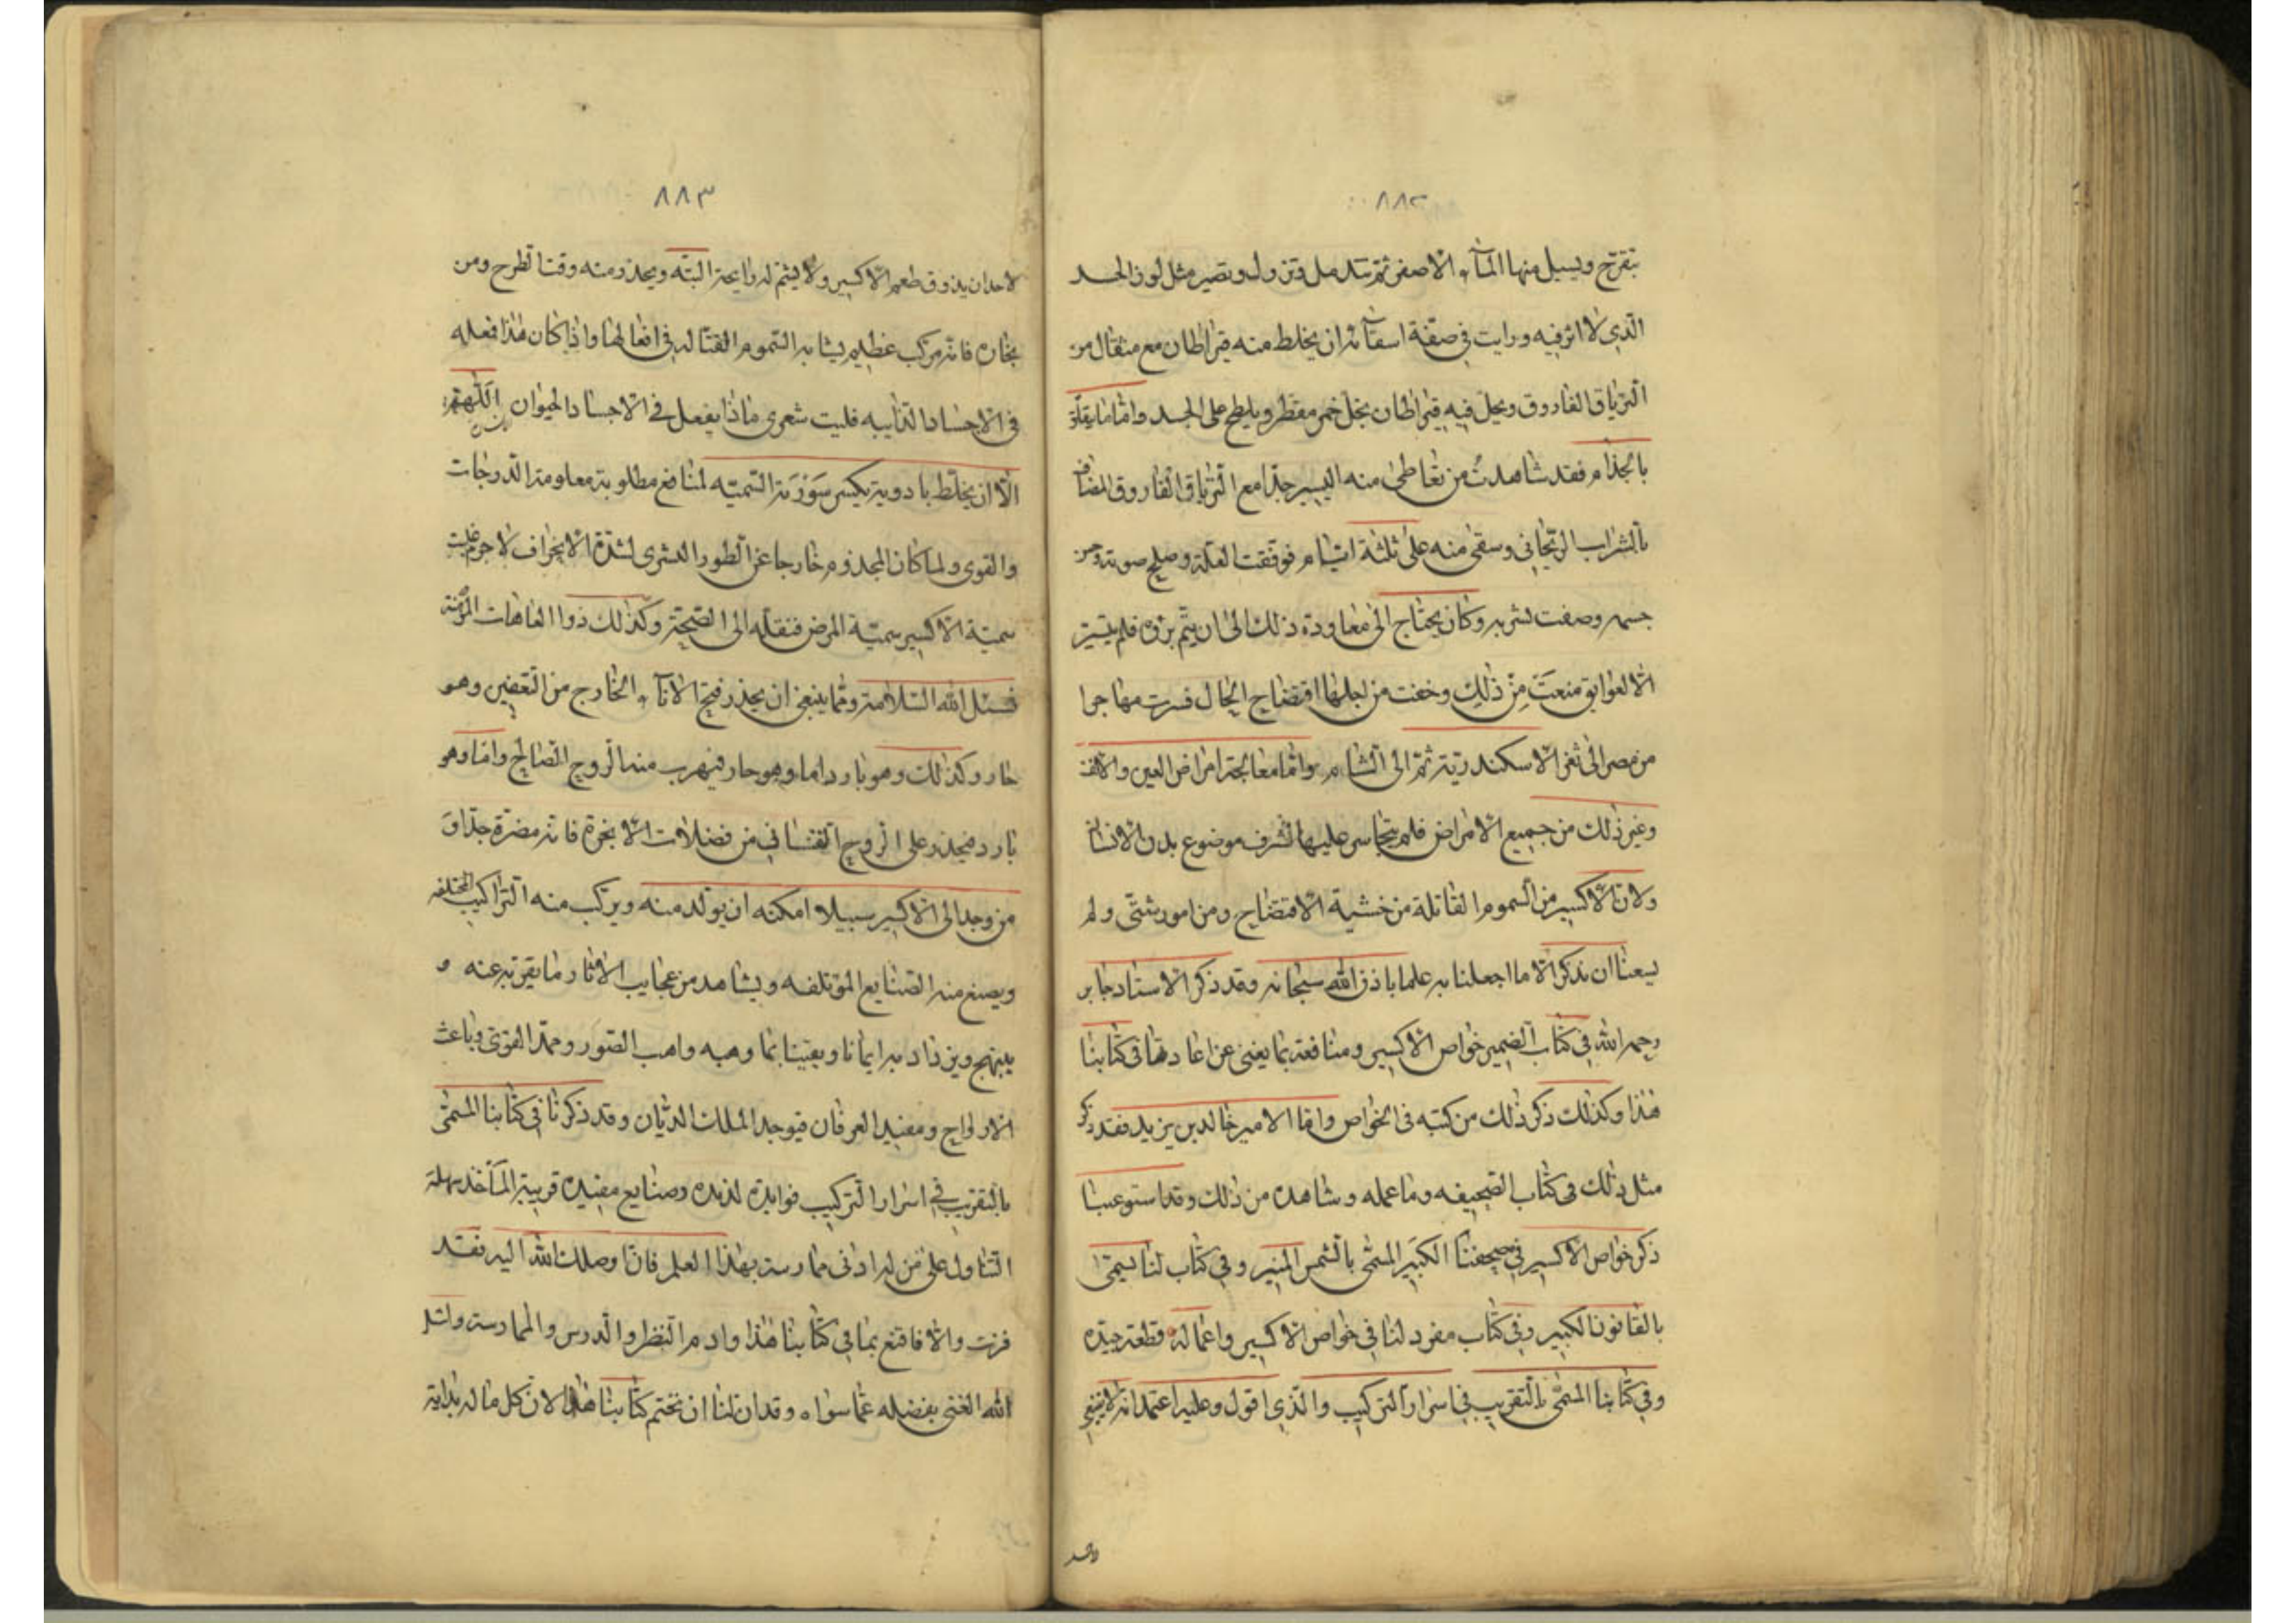 ٨٨٢
بتقرح ويسيل منها المآء الاصفر ثم تندمل وتزول وتصير مثل لون الجسد
الذي لا اثر فيه ورايت في صفة اسقائه ان يخلط منه قيراطان مع مثقال من
الترياق الفاروق ويحل فيه قيراطان بخل خمر مقطر ويلطخ على الجسد واما ما يتعلق
بالجذام فقد شاهدت من تعاطى منه اليسير جدا مع الترياق الفاروق المضاف
بالشراب الريحاني وسقى منه على ثلثة ايام فوقفت العلة وصلح صوته وحسن
جسمه وصفت بشربه وكان يحتاج الى معاودة ذلك الى ان يتم برؤه فلم يتيسر
الا لعوايق منعت من ذلك وخفت من اجلها افتضاح الحال فسرت مهاجرا
من مصر الى ثغر الاسكندرية ثم الى الشام واما معالجة امراض العين والانف
وغير ذلك من جميع الامراض فلم يتجاسر عليها لشرف موضوع بدن الانسان
ولان الاكسير من السموم القاتلة من خشية الافتضاح ومن امور شتى ولم
يسعنا ان نذكر الا ما اجعلنا به علما باذن الله سبحانه وقد ذكر الاستاد جابر
رحمه الله في كتاب الضمير خواص الاكسير ومنافعه بما يغني عن اعادتها في كتابنا
هذا وكذلك ذكر ذلك من كتبه في الخواص واما الامير خالد بن يزيد فقد ذكر
مثل ذلك في كتاب الصحيفه وما عمله وشاهده من ذلك وقد استوعبنا
ذكر خواص الاكسير في صحيفتنا الكبير المسمى بالشمس المنير وفي كتاب لنا يسمى
بالقانون الكبير وفي كتاب مفرد لنا في خواص الاكسير واعماله قطعة جيده
وفي كتابنا المسمى بالتقريب في اسرار التركيب والذي اقول وعليه اعتمد انه لا ينبغي
لاحد
٨٨٣
لاحد ان يذوق طعم الاكسير ولا يشم له رايحة البته ويحذر منه وقتا لطرح ومن
بخاره فانه مركب عظيم يشابه السموم القتاله في افعالها واذا كان هذا فعله
في الاجساد الذايبه فليت شعرى ماذا يفعل في الاجساد الحيوان اللهم
الا ان يخلط بادوية يكسر سورته السميته لمنافع مطلوبة معلومة الدرجات
والقوى ولما كان المجذوم خارجا عن الطور البشرى لشدة الانحراف لا جرم غلبت
سمية الاكسير سمية المرض فنقله الى الصحة وكذلك ذوا العاهات المزمنة
فنسئل الله السلامة ومما ينبغي ان يحذر فتح الانآء الخارج من التعفين وهو
حار وكذلك وهو بارد اما وهو حار فيهرب منه الروح الصالح واما وهو
بارد فيحذر على الروح النفساني من فضلات الابخرة فانه مضرة جدا و
من وجد الى الاكسير سبيلا امكنه ان يولد منه ويركب منه التراكيب المختلفه
ويصنع منه الصنايع المؤتلفه ويشاهد من عجايب الاثار ما يقر به عينه و
يبتهج ويزداد به ايمانا ويقينا بما وهبه واهب الصور وممد القوى وباعث
الارواح ومفيد العرفان فيوجد الملك الديان وقد ذكرنا في كتابنا المسمى
بالتقريب في اسرار التركيب فوايد لذيذه وصنايع مفيده قريبة المآخذ سهلة
التناول على من له ادنى ممارسة بهذا العلم فان وصلك الله اليه فقد
فزت والا فاقنع بما في كتابنا هذا وادم النظر والدرس والممارسة واسئل
الله الغنى بفضله عما سواه وقد ان لنا ان نختم كتابنا هذا لان كل ما له بداية